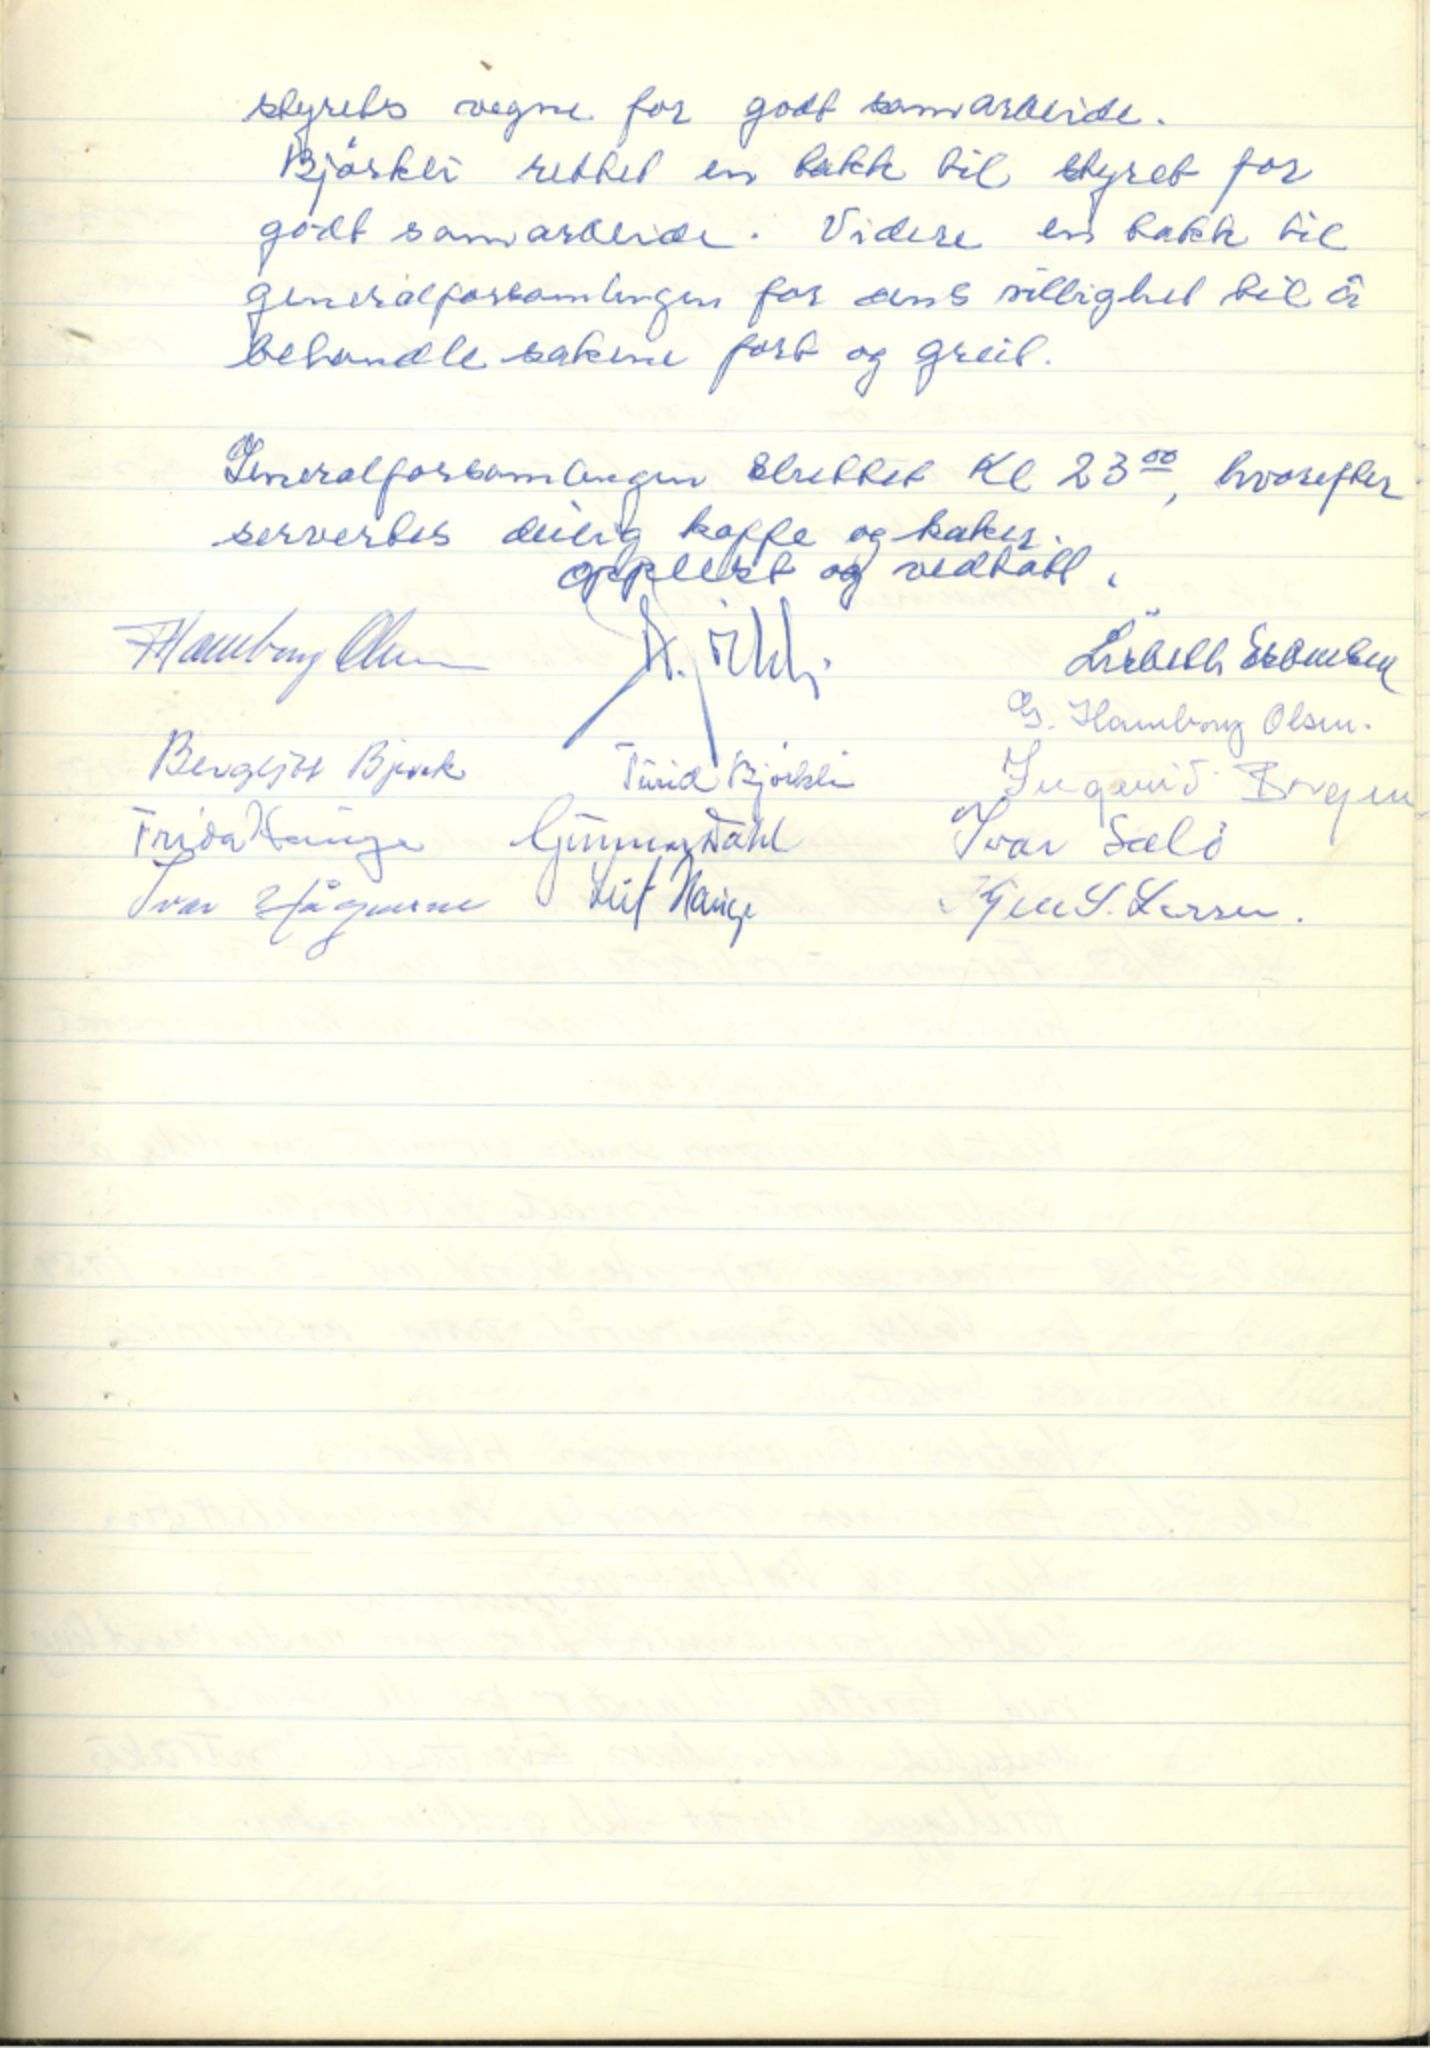 styrets vegne for godt samarbeide.
Bjørkli rettet en takk til styret for
godt samarbeide. Videre en takk til
generalforsamlingen for dens villighet til å
behandle sakene fort og greit.
Generalforsamlingen sluttet Kl 23⁰⁰, hvorefter
servertes deilig kaffe og kaker.
opplest og vedtatt.
Hamborg Olsen
Lisbeth
G. Hamborg Olsen.
Bergljot Bjerk Turid Bjørkli Ingarid Borgen
Frida Hauge Gunnar Dahl Ivar Sælø
Ivar Leif Hauge Kjell S. Larsen.